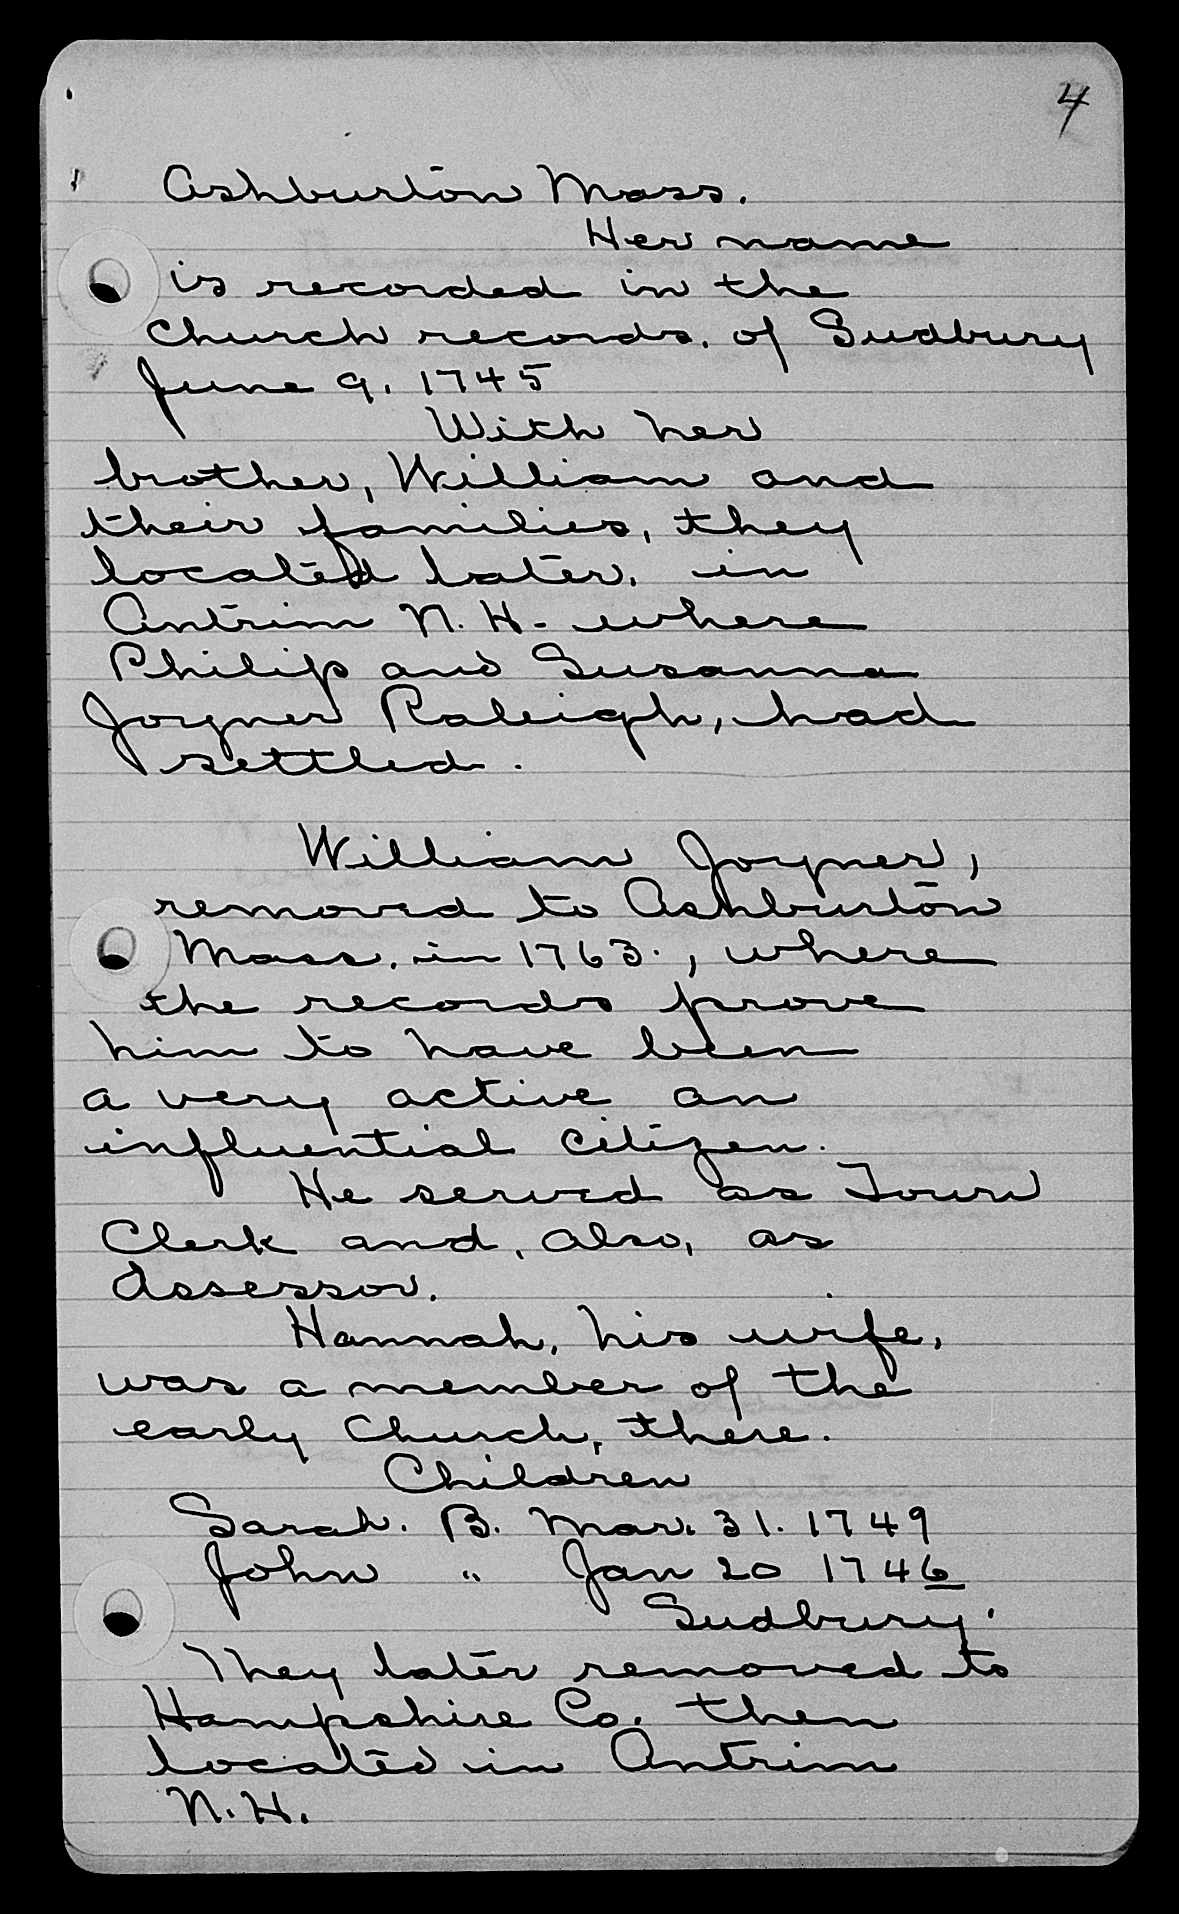 4
Ashburton Mass.
Her name
is recorded in the
Church records. of Sudbury
June 9. 1745
With her
brother, William and
their families, they
located later. in
Antrim N. H. where
Philip and Susanna
Joyner Raleigh, had
settled.
William Joyner,
removed to Ashburton
Mass. in 1763., where
the records prove
him to have been
a very active an
influential citizen.
He served as Town
Clerk and, also, as
Assessor.
Hannah, his wife,
was a member of the
early Church, there.
Children
Sarah. B. Mar. 31. 1749
John " Jan 20 1746
Sudbury.
They later removed to
Hampshire Co. then
located in Antrim
N. H.